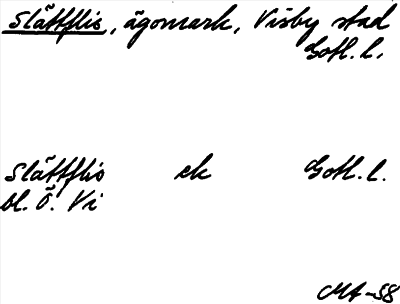 Slättflis, ägomark, Visby stad
Gotl. l.
Slättflis ek Gotl. l.
bl. Ö. Vi
MA-58